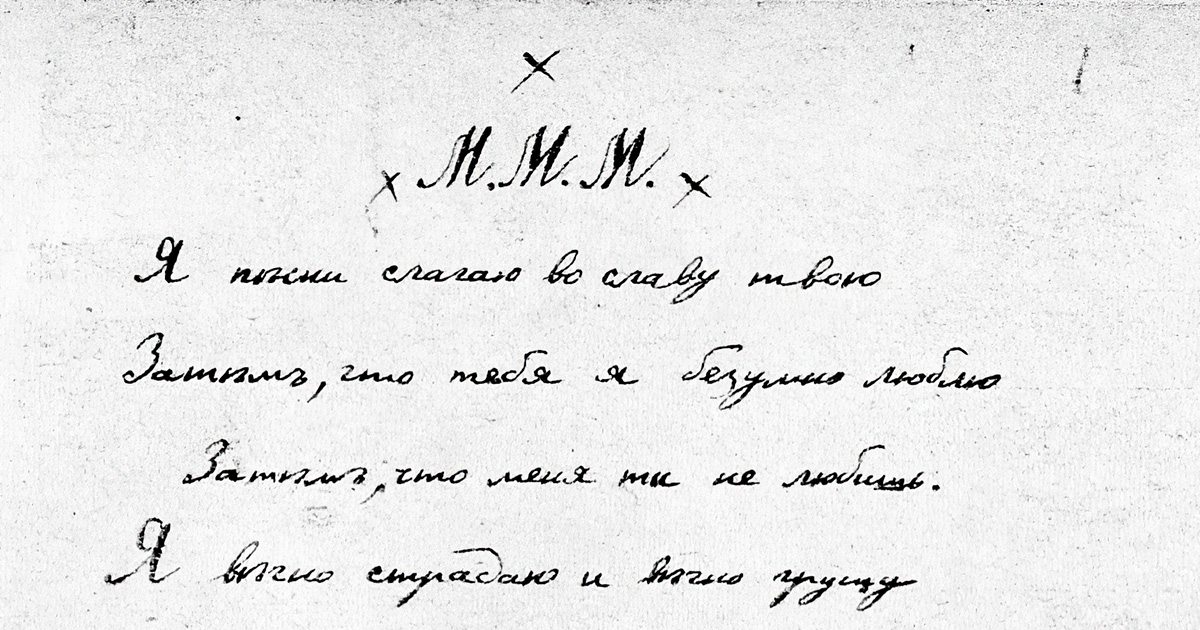 М.М.М.
Я пѣсни слагаю во славу твою
Затѣмъ, что тебя я безумно люблю
Затѣмъ, что меня ты не любишь.
Я вѣчно страдаю и вѣчно грущу